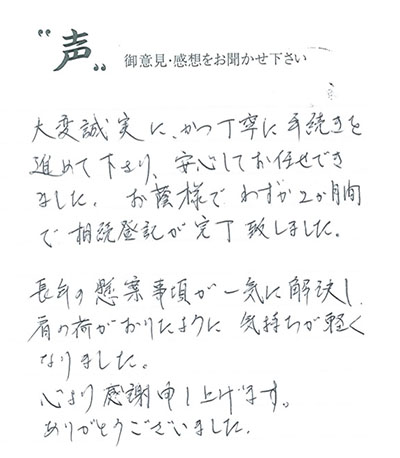 "声" 御意見・感想をお聞かせ下さい
大変誠実に、かつ丁寧に手続きを
進めて下さり、安心してお任せでき
ました。お蔭様でわずか2か月間
で相続登記が完了致しました。
長年の懸案事項が一気に解決し
肩の荷がおりたように気持ちが軽く
なりました。
心より感謝申し上げます。
ありがとうございました。